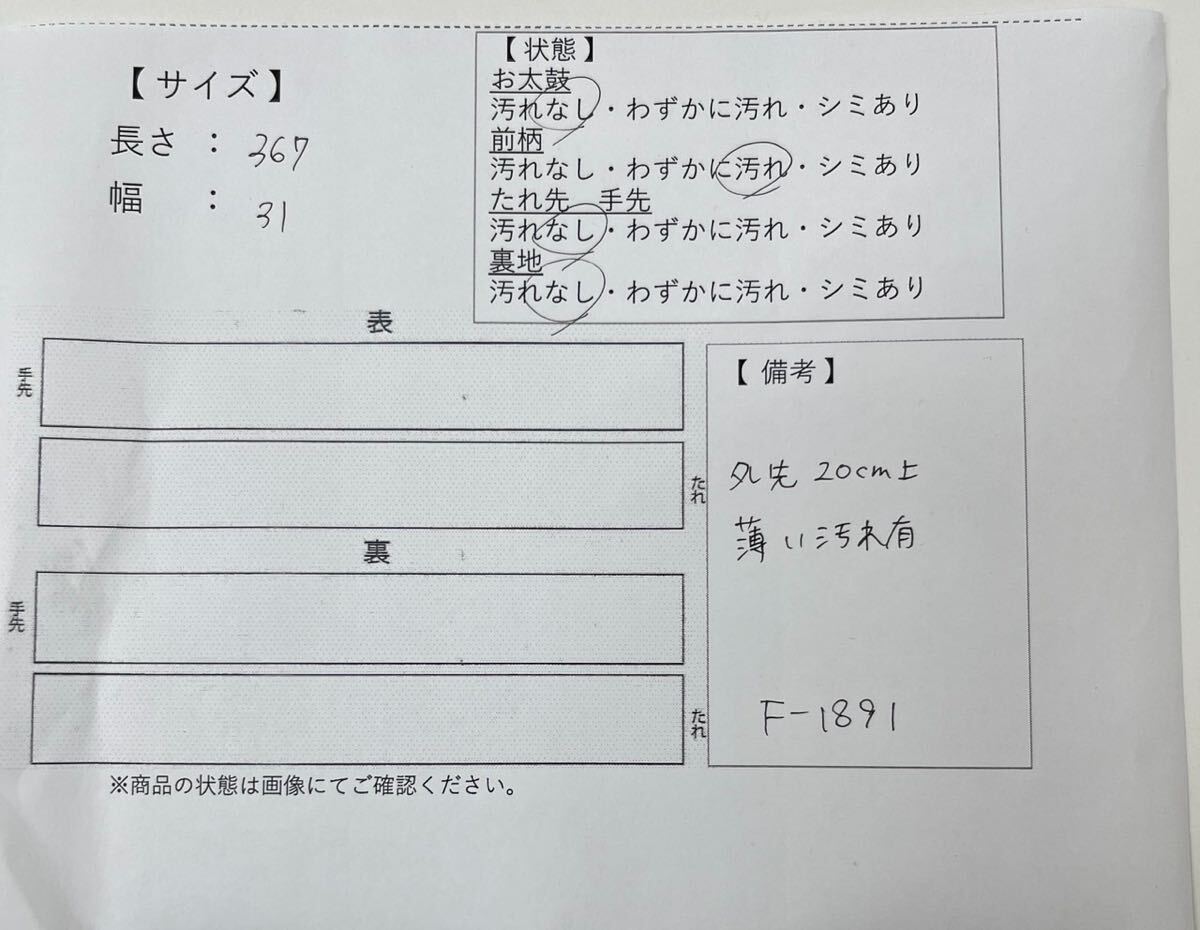 【サイズ】
長さ : 367
幅 : 31
【状態】
お太鼓
汚れなし・わずかに汚れ・シミあり
前柄
汚れなし・わずかに汚れ・シミあり
たれ先 手先
汚れなし・わずかに汚れ・シミあり
裏地
汚れなし・わずかに汚れ・シミあり
表
手先
たれ
裏
手先
たれ
【備考】
タレ先 20cm上
薄い汚れ有
F-1891
※商品の状態は画像にてご確認ください。